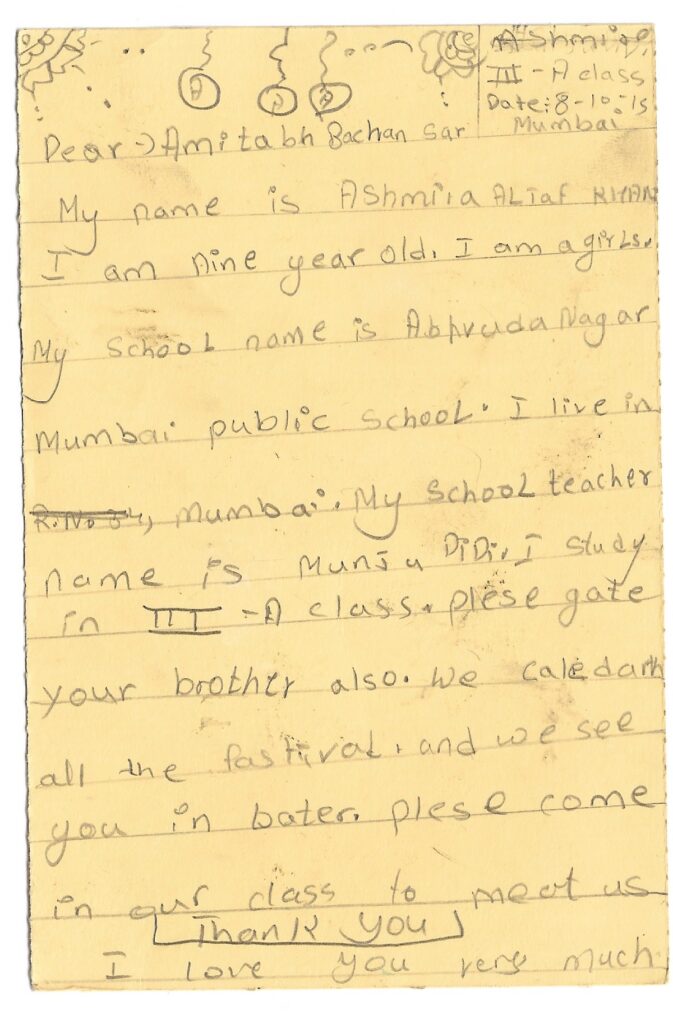 Ashmira
III - A class
Date: 8-10-15
Mumbai
A A A
Dear → Amitabh Bachan Sar
My name is AShmira ALTaf KHAN
I am nine year old. I am a girls.
My School name is Abhyuda Nagar
Mumbai public School. I live in
R.No 34, Mumbai. My School teacher
name is Munju DiDi. I study
in III - A class. plese gate
your brother also. We caledarh
all the fastival. and we see
you in bater. plese come
in our class to meet us
Thank you
I love you very much